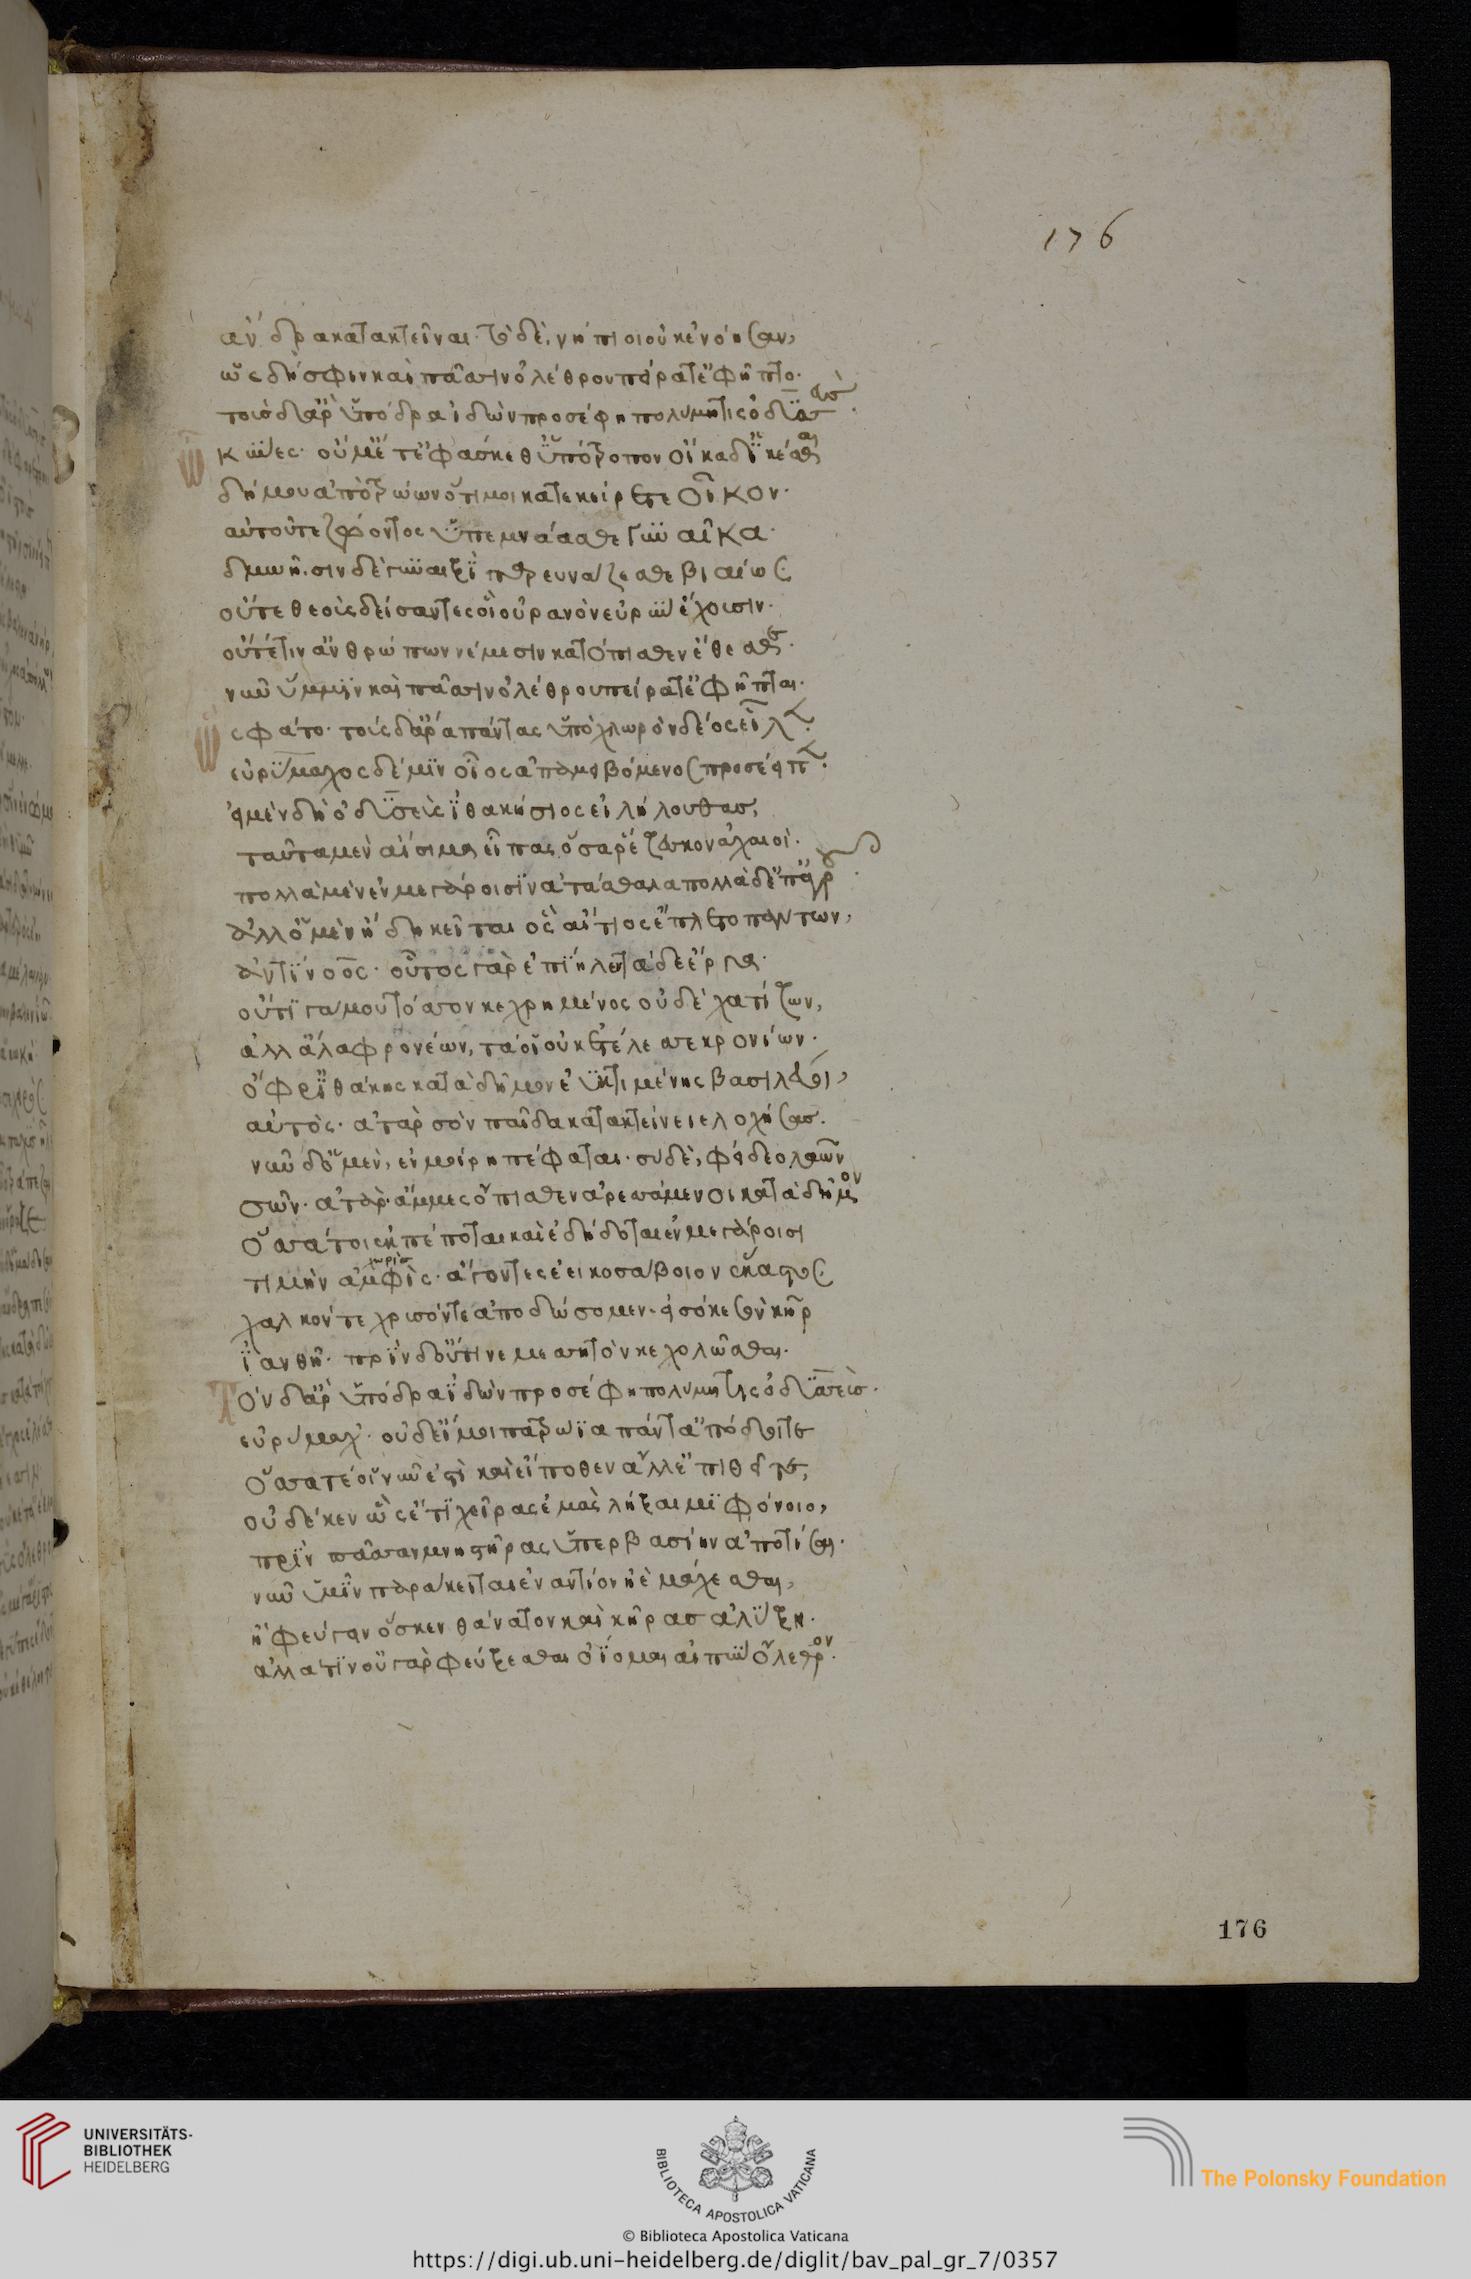 ἄνδρα κατακτεῖναι· τὸ δὲ, νήπιοι οὐκ ἐνόησαν,
ὡς δή σφιν καὶ πᾶσιν ὀλέθρου πείρατ' ἐφῆπτο·
τοὺς δ' ἄρ' ὑπόδρα ἰδὼν προσέφη πολύμητις ὀδυσσεὺς·
ὦ κύνες· οὔ μ' ἔτ' ἐφάσκεθ' ὑπότροπον οἴκαδ' ἱκέσθαι
δήμου ἀπὸ τρώων ὅτι μοι κατεκείρετε οἶκον·
αὐτοῦ τε ζώοντος ὑπεμνάασθε γυναῖκα·
δμωῇσιν δὲ γυναιξὶ παρευνάζεσθε βιαίως
οὔτε θεοὺς δείσαντες οἳ οὐρανὸν εὐρὺν ἔχουσιν·
οὔτέ τιν' ἀνθρώπων νέμεσιν κατόπισθεν ἔθεσθε·
νῦν ὕμμιν καὶ πᾶσιν ὀλέθρου πείρατ' ἐφῆπται·
ὣς φάτο· τοὺς δ' ἄρα πάντας ὑπὸ χλωρὸν δέος εἷλε·
εὐρύμαχος δέ μιν οἶος ἀπαμειβόμενος προσέειπε·
εἰ μὲν δὴ ὀδυσσεὺς ἰθακήσιος εἰλήλουθας,
ταῦτα μὲν αἴσιμα εἶπας ὅσα ῥέζεσκον ἀχαιοὶ·
πολλὰ μὲν ἐν μεγάροισιν ἀτάσθαλα πολλὰ δ' ἐπ' ἀγροῦ·
ἀλλ' ὁ μὲν ἤδη κεῖται ὃς αἴτιος ἔπλετο πάντων,
ἀντίνοος· οὗτος γὰρ ἐπίηλεν τάδε ἔργα·
οὔτι γάμου τόσσον κεχρημένος οὐδὲ χατίζων,
ἀλλ' ἄλλα φρονέων, τά οἱ οὐκ ἐτέλεσσε κρονίων·
ὄφρ' ἰθάκης κατὰ δῆμον ἐϋκτιμένης βασιλεύοι,
αὐτὸς· ἀτὰρ σὸν παῖδα κατακτείνειε λοχήσας.
νῦν δ' ὁ μὲν, ἐν μοίρῃ πέφαται· σὺ δὲ, φείδεο λαῶν
σῶν· ἀτὰρ ἄμμες ὄπισθεν ἀρεσσάμενοι κατὰ δῆμον
ὅσσά τοι ἐκπέποται καὶ ἐδήδοται ἐν μεγάροισι
τιμὴν ἀμφὶς· ἄγοντες ἐεικοσάβοιον ἕκαστος
χωρὶς
χαλκόν τε χρυσόν τε ἀποδώσομεν. εἰσόκε σὸν κῆρ
ἰανθῇ· πρὶν δ' οὔτι νεμεσσητὸν κεχολῶσθαι·
Τὸν δ' ἄρ' ὑπόδρα ἰδὼν προσέφη πολύμητις ὀδυσσεὺς·
εὐρύμαχ'· οὐδ' εἴ μοι πατρώϊα πάντ' ἀποδοῖτε
ὅσσά τε οἷ νῦν ἐστὶ καὶ εἴ ποθεν ἄλλ' ἐπιθεῖτε,
οὐδέ κεν ὣς ἔτι χεῖρας ἐμὰς λήξαιμι φόνοιο,
πρὶν πᾶσαν μνηστῆρας ὑπερβασίην ἀποτῖσαι·
νῦν ὑμῖν παράκειται ἐναντίον ἠὲ μάχεσθαι,
ἢ φεύγειν ὅς κεν θάνατον καὶ κῆρας ἀλύξῃ·
ἀλλά τιν' οὐ γὰρ φεύξεσθαι ὀΐομαι αἰπὺν ὄλεθρον·
176
176
UNIVERSITÄTS-
BIBLIOTHEK
HEIDELBERG
BIBLIOTECA APOSTOLICA VATICANA
The Polonsky Foundation
© Biblioteca Apostolica Vaticana
https://digi.ub.uni-heidelberg.de/diglit/bav_pal_gr_7/0357